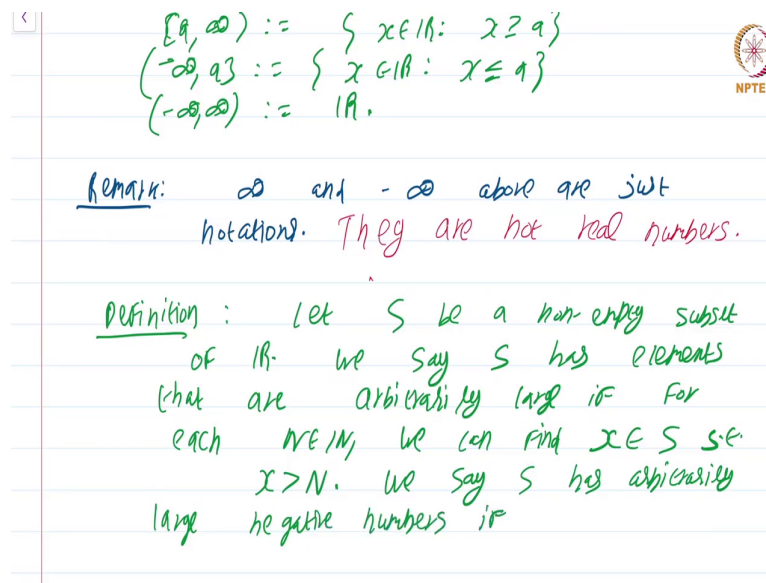 [a, ∞) := { x∈ℝ: x ≥ a}
(-∞, a] := { x ∈ℝ : x ≤ a}
(-∞,∞) := ℝ.
NPTE
Remark: ∞ and - ∞ above are just
notations. They are not real numbers.
Definition : Let S be a non-empty subset
of ℝ. We say S has elements
that are arbitrarily large if for
each N∈ℕ, we can find x∈ S s.t.
x>N. We say S has arbitrarily
large negative numbers if